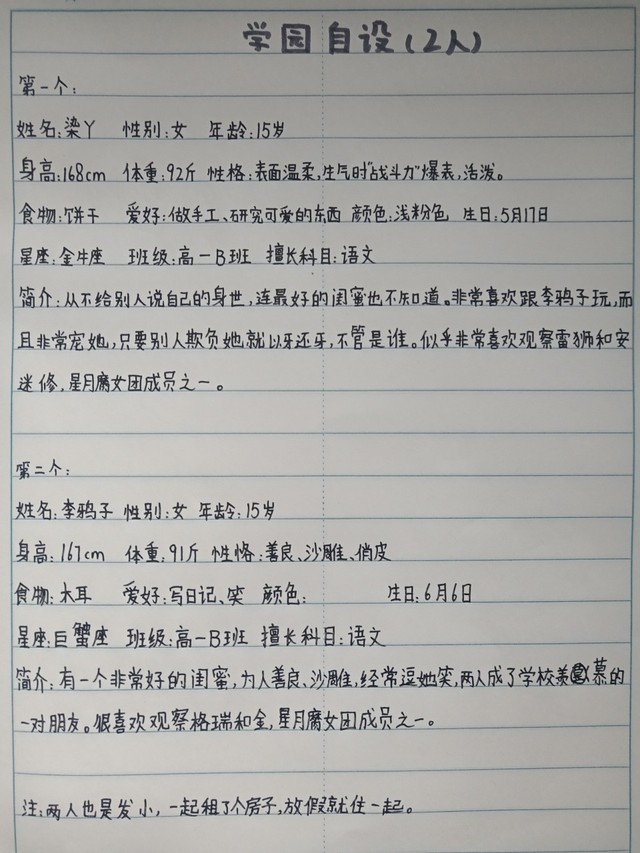 学园自设(2人)
第一个:
姓名:染丫 性别:女 年龄:15岁
身高:168cm 体重:92斤 性格:表面温柔,生气时“战斗力”爆表,活泼。
食物:饼干 爱好:做手工、研究可爱的东西 颜色:浅粉色 生日:5月17日
星座:金牛座 班级:高一B班 擅长科目:语文
简介:从不给别人说自己的身世,连最好的闺蜜也不知道。非常喜欢跟李鸦子玩,而
且非常宠她,只要别人欺负她就以牙还牙,不管是谁。似乎非常喜欢观察雷狮和安
迷修,星月腐女团成员之一。
第二个:
姓名:李鸦子 性别:女 年龄:15岁
身高:167cm 体重:91斤 性格:善良、沙雕、俏皮
食物:木耳 爱好:写日记、笑 颜色: 生日:6月6日
星座:巨蟹座 班级:高一B班 擅长科目:语文
简介:有一个非常好的闺蜜,为人善良、沙雕,经常逗她笑,两人成了学校羡慕的
一对朋友。很喜欢观察格瑞和金,星月腐女团成员之一。
注:两人也是发小,一起租了个房子,放假就住一起。